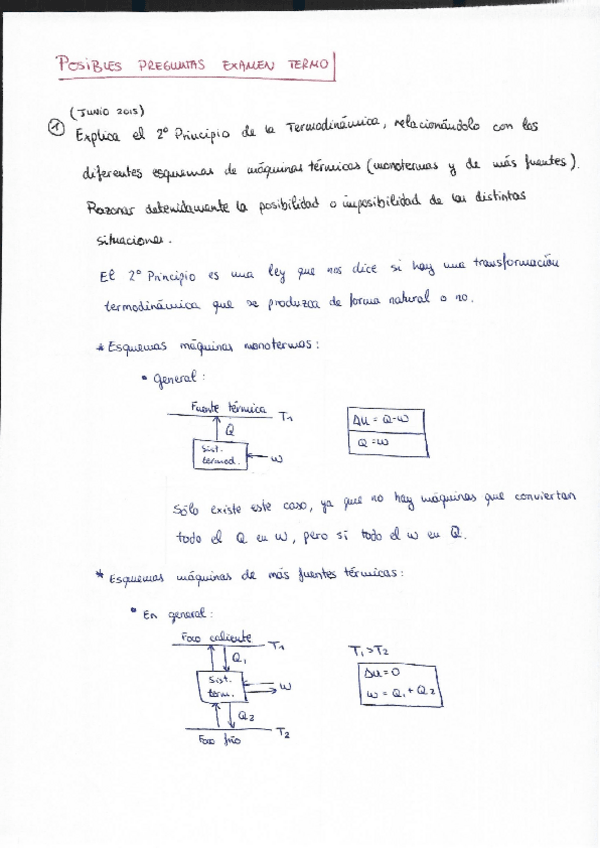 POSIBLES PREGUNTAS EXAMEN TERMO
(JUNIO 2015)
① Explica el 2º Principio de la Termodinámica, relacionándolo con los
diferentes esquemas de máquinas térmicas (monotermas y de más fuentes).
Razonar detenidamente la posibilidad o imposibilidad de las distintas
situaciones.
El 2º Principio es una ley que nos dice si hay una transformación
termodinámica que se produzca de forma natural o no.
* Esquemas máquinas monotermas:
• General:
Fuente térmica T₁
Q
Sist. termod.
W
Δu = Q-W
Q = W
Sólo existe este caso, ya que no hay máquinas que conviertan
todo el Q en W, pero sí todo el W en Q.
* Esquemas máquinas de más fuentes térmicas:
• En general:
Foco caliente T₁
Q₁
Sist. term.
W
Q₂
T₂
Foco frío
T₁>T₂
Δu=0
W = Q₁ + Q₂